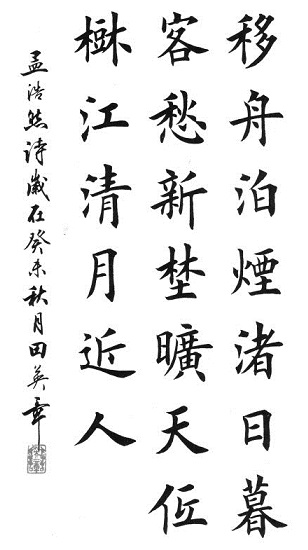 移舟泊煙渚日暮
客愁新埜曠天低
樹江清月近人
孟浩然诗歲在癸未秋月田英章